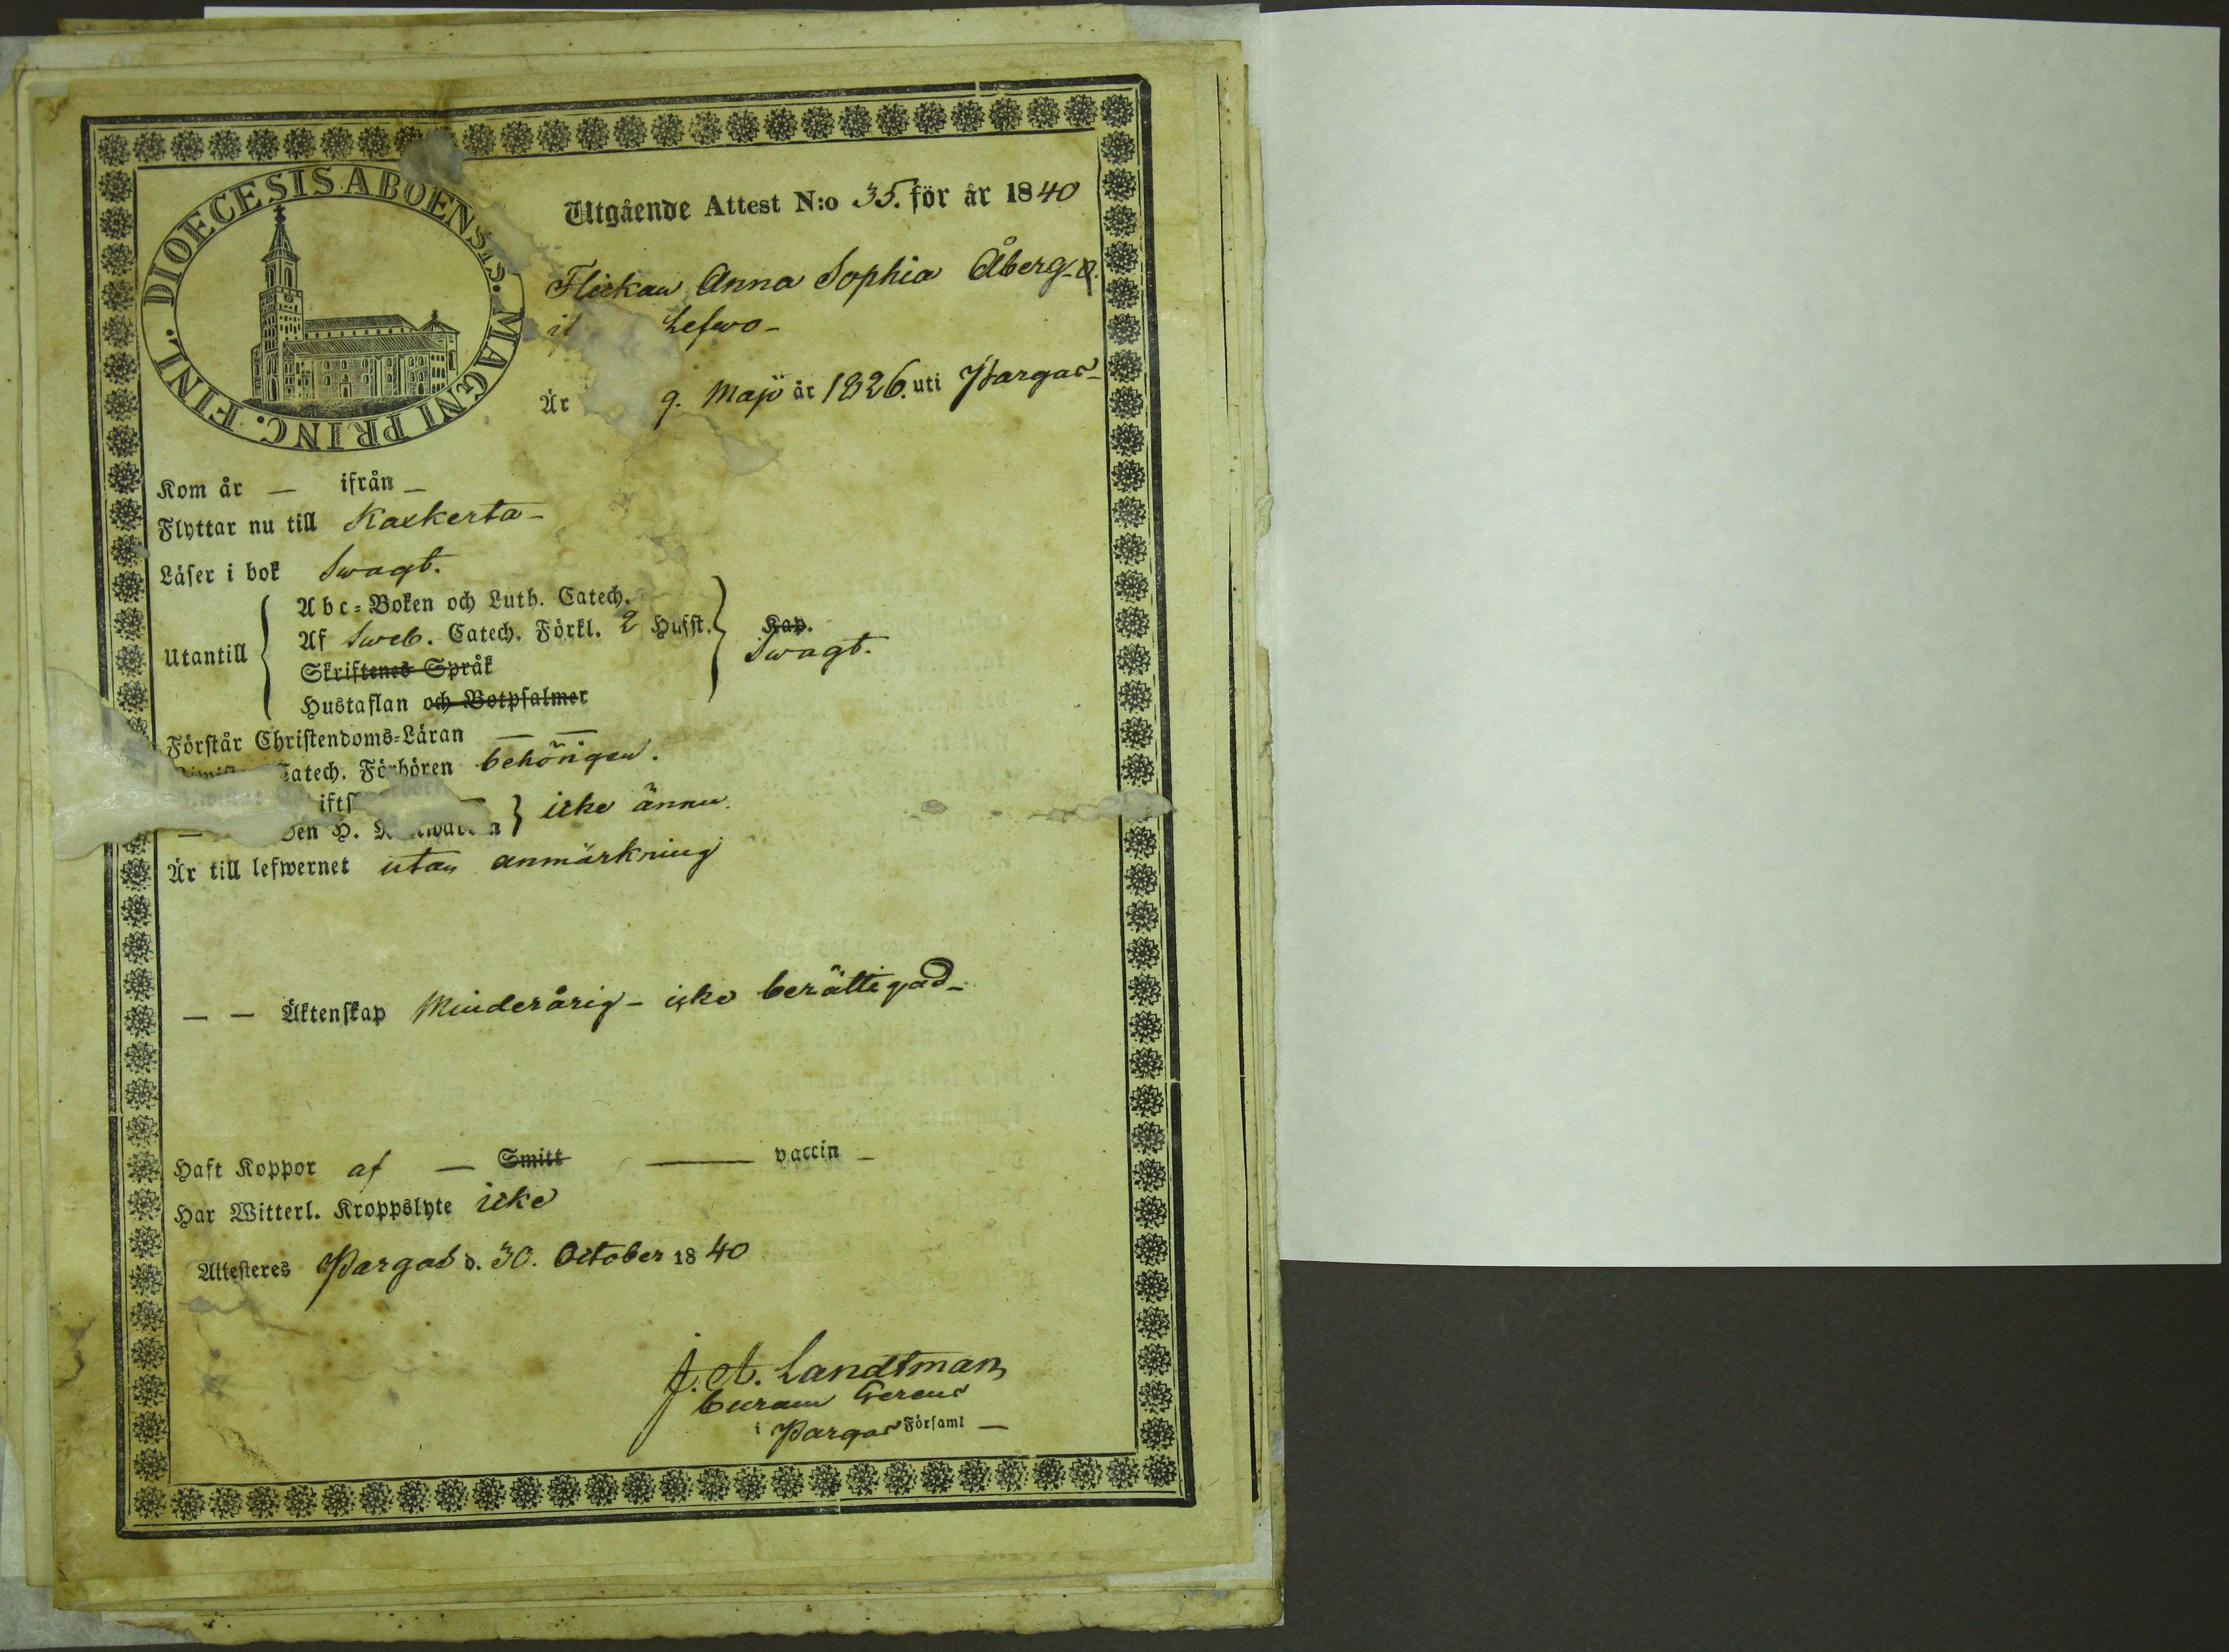 DIOECESIS ABOENSIS. MAGNI PRINC. FINL.
Utgående Attest N:o 35. för år 1840
Flickan Anna Sophia Åberg
Lefwo
Är 9. Maji år 1826. uti Pargas
Kom år — ifrån —
Flyttar nu till Kaskerta
Läser i bok Swagt.
Utantill
Abc=Boken och Luth. Catech.
Af Sweb. Catech. Förkl. 2 Husst. Kap.
Skriftenes Språk Swagt.
Hustaflan och Botpsalmer
Förstår Christendoms=Läran — —
Catech. Förhören behörigen.
icke ännu.
den H.
Är till lefwernet utan anmärkning
— — Äktenskap Minderårig – icke berättigad
Haft Koppor af — Smitt — vaccin —
Har Witterl. Kroppslyte icke
Attesteres Pargas d. 30. October 1840
J. A. Landtman
Curam Gerens
i Pargas Församl —